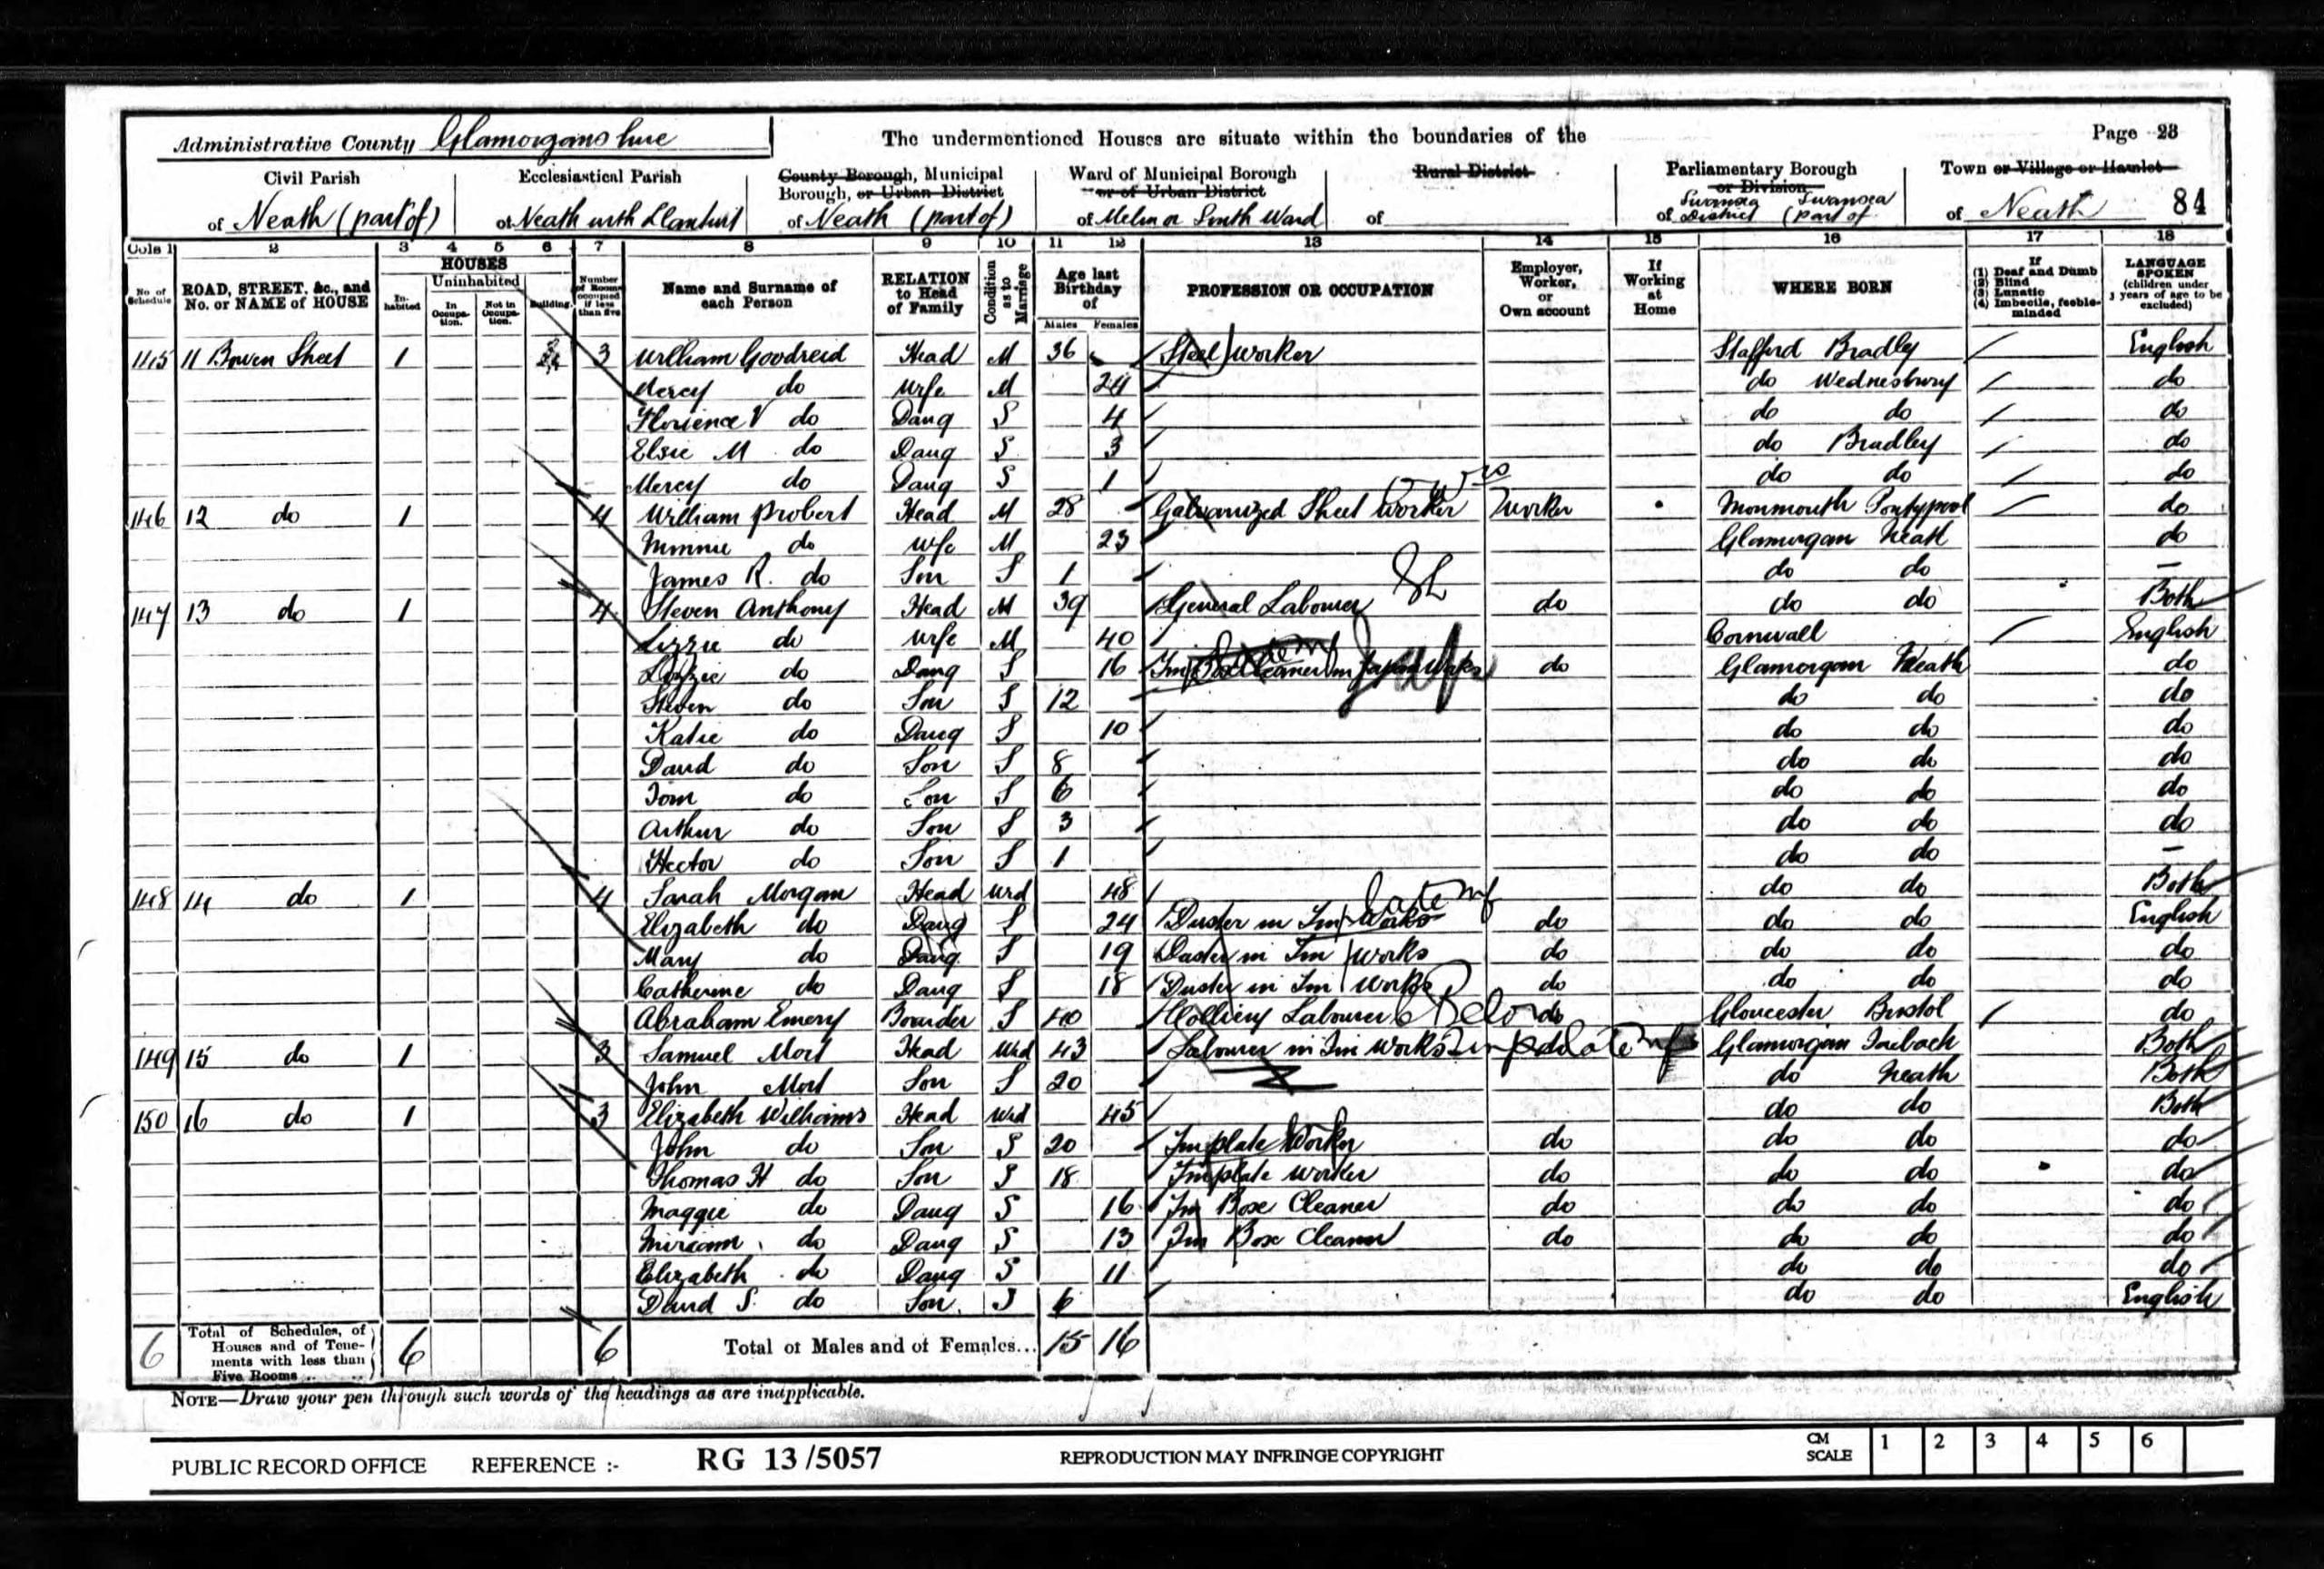 Administrative County Glamorganshire The undermentioned Houses are situate within the boundaries of the Page 23
Civil Parish Ecclesiastical Parish County Borough, Municipal Borough, or Urban District Ward of Municipal Borough or of Urban District Rural District Parliamentary Borough or Division Town or Village or Hamlet
of Neath (part of) of Neath with Llantwit of Neath (part of) of Melin or South Ward of of Swansea District Swansea (part of of Neath 84
Cols 1 2 3 4 5 6 7 8 9 10 11 12 13 14 15 16 17 18
No. of Schedule ROAD, STREET, &c., and No. or NAME of HOUSE HOUSES Inhabited Uninhabited In Occupation. Not in Occupation. Building. Number of Rooms occupied if less than five Name and Surname of each Person RELATION to Head of Family Condition as to Marriage Age last Birthday of Males Females PROFESSION OR OCCUPATION Employer, Worker, or Own account If Working at Home WHERE BORN If (1) Deaf and Dumb (2) Blind (3) Lunatic (4) Imbecile, feeble-minded LANGUAGE SPOKEN (children under 3 years of age to be excluded)
145 11 Bowen Street 1 3 William Goodreid Head M 36 Steel worker Stafford Bradley English
Mercy do Wife M 24 do Wednesbury do
Florience V do Daug S 4 do do do
Elsie M do Daug S 3 do Bradley do
Mercy do Daug S 1 do do do
146 12 do 1 4 William Probert Head M 28 Galvanized Sheet Worker Worker Monmouth Pontypool do
Minnie do Wife M 23 Glamorgan Neath do
James R. do Son S 1 do do –
147 13 do 1 4 Steven Anthony Head M 39 General Labourer do do do Both
Lizzie do Wife M 40 Cornwall English
Lizzie do Daug S 16 Tin Box Cleaner in Japan Works do Glamorgan Neath do
Steven do Son S 12 do do do
Katie do Daug S 10 do do do
David do Son S 8 do do do
Tom do Son S 6 do do do
Arthur do Son S 3 do do do
Hector do Son S 1 do do –
148 14 do 1 4 Sarah Morgan Head Wid 48 do do Both
Elizabeth do Daug S 24 Duster in Tin Works do do do English
Mary do Daug S 19 Duster in Tin works do do do do
Catherine do Daug S 18 Duster in Tin works do do do do
Abraham Emery Boarder S 40 Colliery Labourer Below do Gloucester Bristol do
149 15 do 1 3 Samuel Mort Head Wid 43 Labourer in Tin Works Tinplate mf Glamorgan Taibach Both
John Mort Son S 20 do Neath Both
150 16 do 1 3 Elizabeth Williams Head Wid 45 do do Both
John do Son S 20 Tinplate Worker do do do do
Thomas H do Son S 18 Tinplate worker do do do do
Maggie do Daug S 16 Tin Box Cleaner do do do do
Miriam do Daug S 13 Tin Box Cleaner do do do do
Elizabeth do Daug S 11 do do do
David S. do Son S 6 do do English
6 Total of Schedules, of Houses and of Tenements with less than Five Rooms .. 6 6 Total of Males and of Females... 15 16
NOTE—Draw your pen through such words of the headings as are inapplicable.
PUBLIC RECORD OFFICE REFERENCE :- RG 13 /5057 REPRODUCTION MAY INFRINGE COPYRIGHT CM SCALE 1 2 3 4 5 6